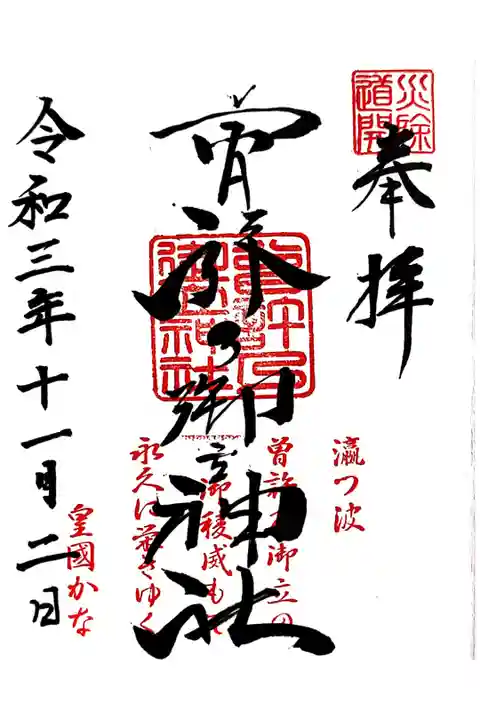 災除
道開
奉拝
曽許乃御立神社
令和三年十一月二日
瀛つ波
曽許乃御立の
御稜威もて
永久に榮えゆく
皇國かな